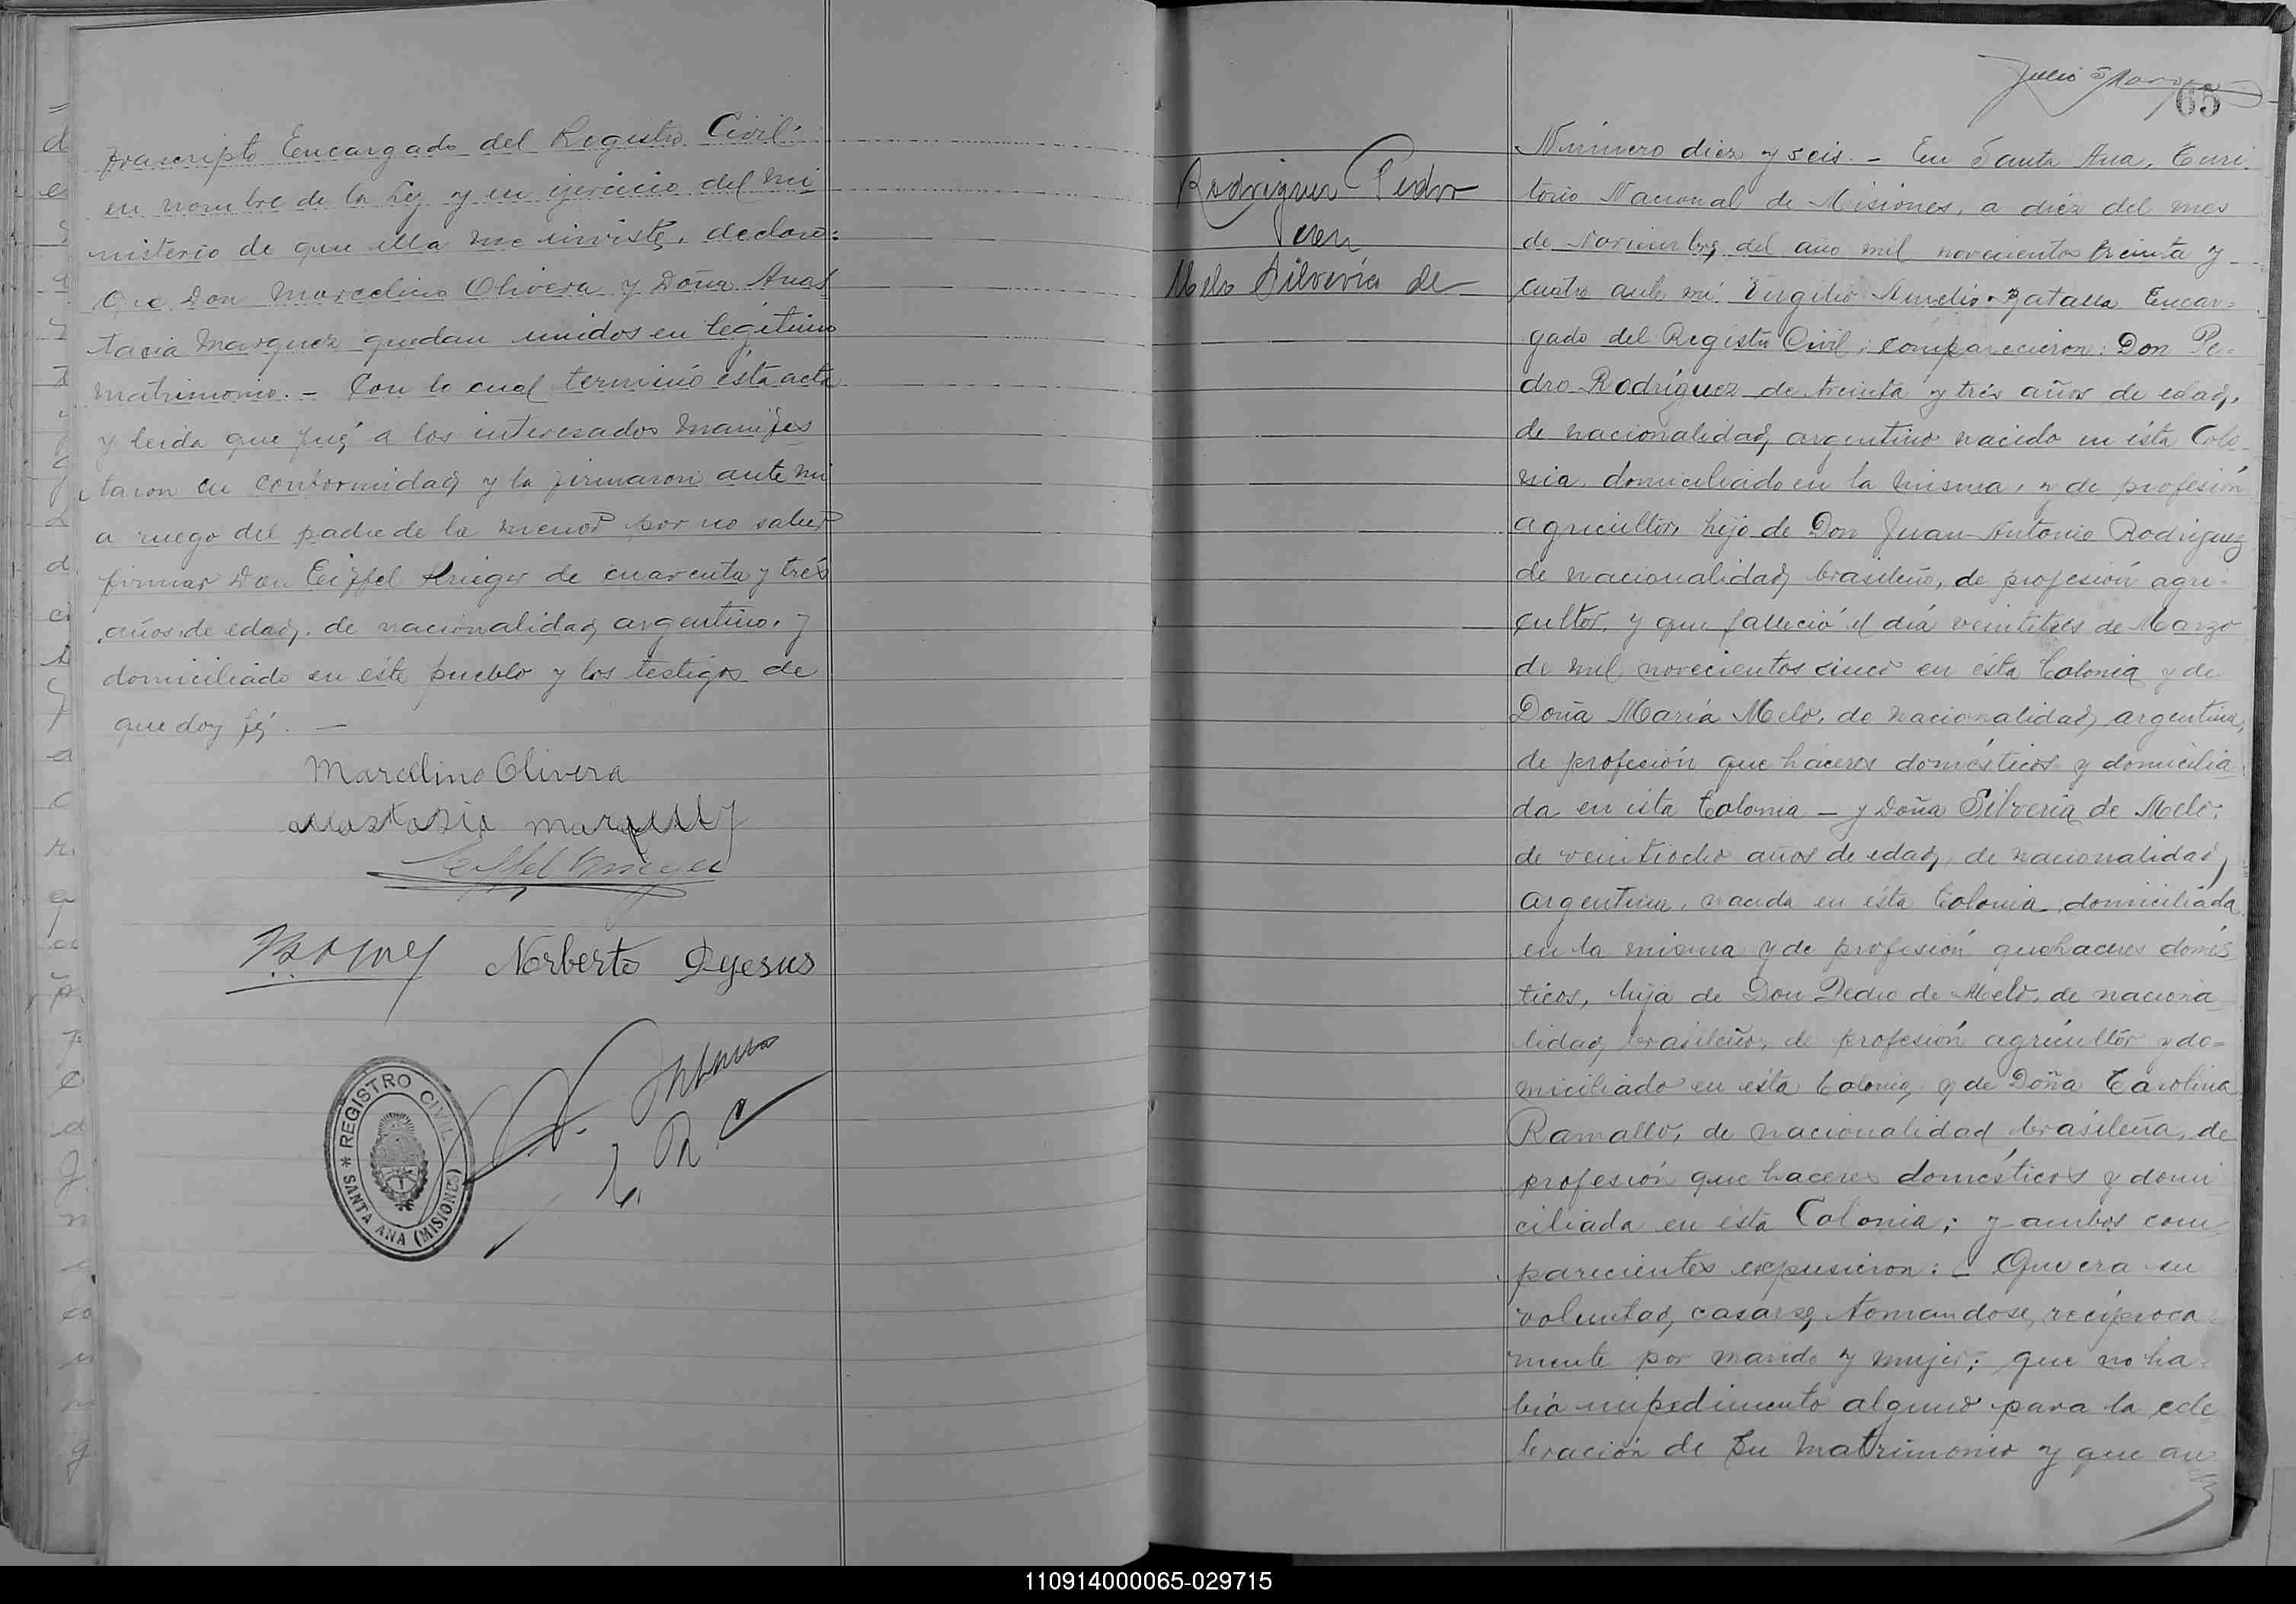 trascripto Encargado del Registro Civil:
en nombre de la Ley y en ejercicio del mi
nisterio de que ella me inviste, declaro:
Que Don Marcelino Olivera y Doña Anas
tacia Marquez quedan unidos en legitimo
matrimonio. - Con lo cual terminó ésta acta
y leida que fué, a los interesados manifes
taron su conformidad y la firmaron ante mi
a ruego del padre de la menor por no saber
firmar Don Eiffel Krieger de cuarenta y tres
años de edad, de nacionalidad argentino, y
domiciliado en éste pueblo y los testigos de
que doy fé. —
Marcelino Olivera
anastasia marquez
Norberto Dyesus
E. R. C
* REGISTRO CIVIL * SANTA ANA (MISIONES)
Julio
65
Rodriguez Pedro
con
Melo Silveria de
Número diez y seis. - En Santa Ana, Terri
torio Nacional de Misiones, a diez del mes
de Noviembre, del año mil novecientos treinta y
cuatro ante mi: Virgilio Aurelio Zatalla Encar=
gado del Registro Civil, comparecieron: Don Pe=
dro Rodríguez de treinta y tres años de edad,
de nacionalidad, argentino nacido en ésta Colo
nia, domiciliado en la misma, y de profesión
agricultor, hijo de Don Juan Antonio Rodriguez
de nacionalidad, brasileño, de profesión agri=
cultor, y que falleció el día veintitres de Marzo
de mil novecientos cinco en ésta Colonia y de
Doña María Melo, de nacionalidad, argentina,
de profesión que háceres domésticos y domicilia
da en ésta Colonia — y Doña Silveria de Melo:
de veintiocho años de edad, de nacionalidad,
argentina, nacida en ésta Colonia, domiciliada
en la misma y de profesión quehaceres domés
ticos, hija de Don Pedro de Melo, de naciona
lidad, brasileño, de profesión agricultor y do=
miciliado en ésta Colonia, y de Doña Carolina
Ramallo, de nacionalidad brasileña, de
profesión que haceres domésticos y domi
ciliada en ésta Colonia; y ambos com
parecientes expusieron: - Que era su
voluntad, casarse, tomandose, recíproca=
mente por marido y mujer; que no ha=
bía impedimento alguno para la cele
bración de su matrimonio y que an
110914000065-029715